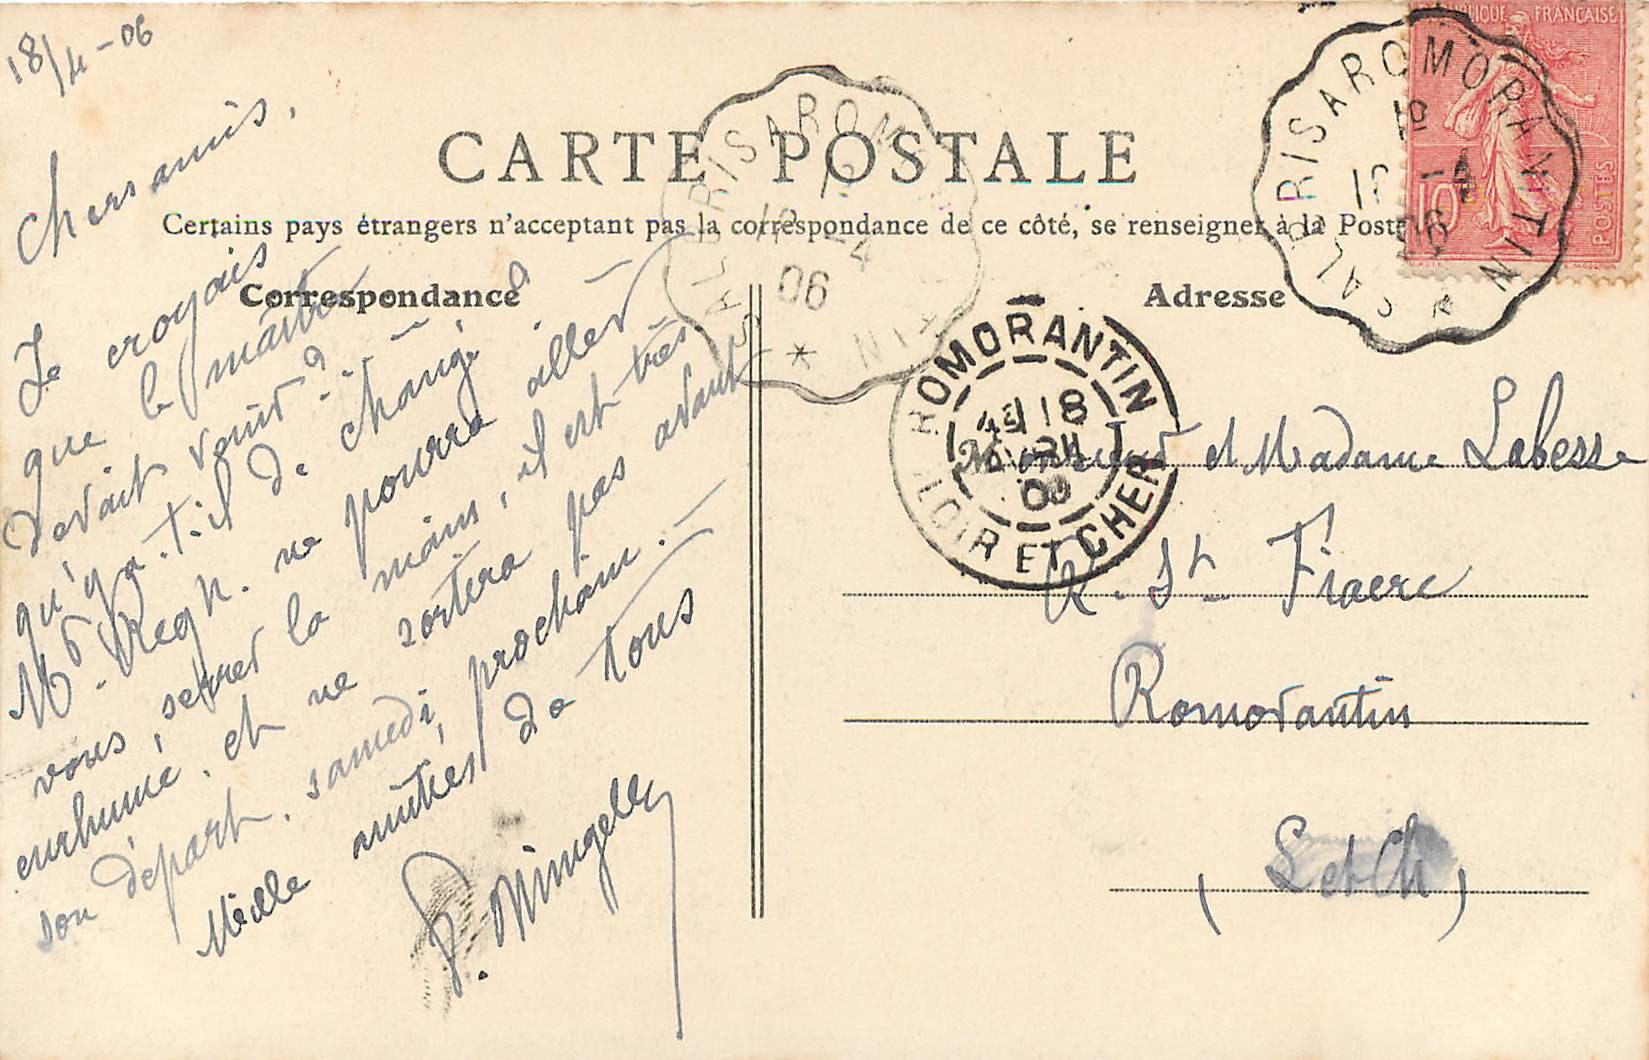 18/4-06
RÉPUBLIQUE FRANÇAISE
10c
POSTES
SALBRIS A ROMORANTIN
18
18 -4
06
CARTE POSTALE
SALBRIS A ROMORANTIN
18 -4
06
Certains pays étrangers n'acceptent pas la correspondance de ce côté, se renseigner à la Poste
Correspondance
Adresse
Chers amis,
Je croyais
que le maître
devait venir ?
qu'y a-t-il de changé ?
Mr Regn. ne pourra aller
vous serrer la main, il est très
enrhumé. et ne sortira pas avant
son départ, samedi prochain. —
Mille amitiés de tous
P. Mingell
ROMORANTIN
18
06
LOIR ET CHER
Monsieur et Madame Labesse
R. St Fiacre
Romorantin
(L et Ch)